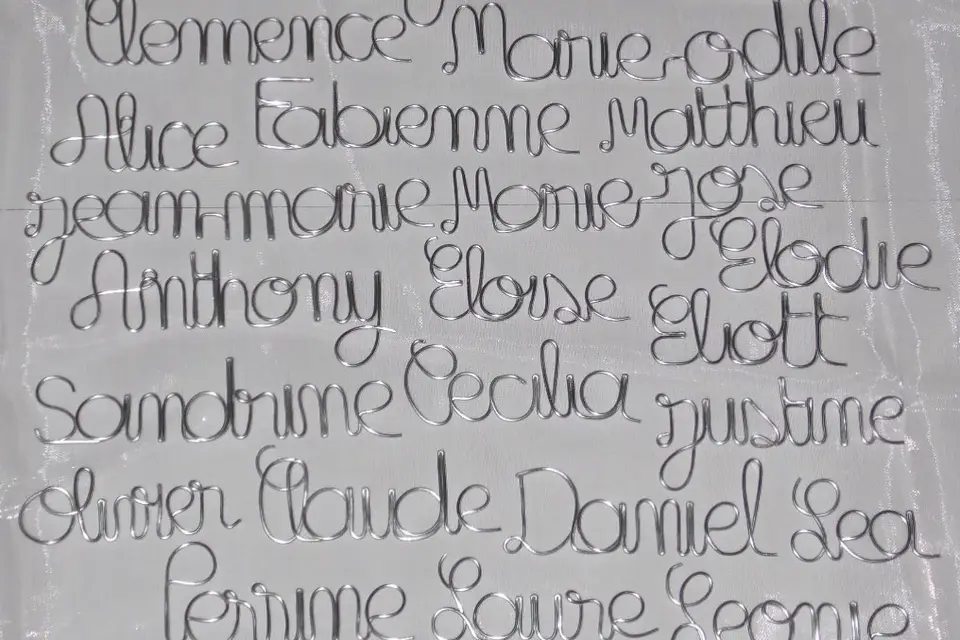 Clemence Marie-odile
Alice Fabienne Matthieu
jean-marie Marie-jose
Anthony Eloise Elodie
Eliott
Sandrine Cecilia justine
Olivier Claude Daniel Lea
Perrine Laure Leonie